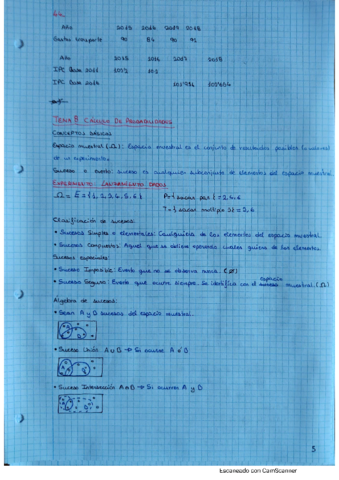 Año 2015 2016 2017 2018
Gastos transporte 90 84 90 92
Año 2015 2016 2017 2018
IPC Base 2011
IPC Base 2016
TEMA 8 CÁLCULO DE PROBABILIDADES
CONCEPTOS BÁSICOS
Espacio muestral (Ω): Espacio muestral es el conjunto de resultados posibles
de un experimento.
Suceso o evento: suceso es cualquier subconjunto de elementos del espacio muestral
EXPERIMENTO: LANZAMIENTO DADO
Ω = E = {1, 2, 3, 4, 5, 6} sacar par = 2, 4, 6
sacar multiplo 3 = 3, 6
Clasificación de sucesos:
• Sucesos Simples o elementales: Cualquiera de los elementos del espacio muestral.
• Sucesos Compuestos: Aquel que se define operando de los elementos.
Sucesos especiales:
• Suceso Imposible: Evento que no se observa nunca. (Ø)
• Suceso Seguro: Evento que ocurre siempre. Se identifica con el espacio muestral (Ω)
Algebra de sucesos:
• Sean A y B sucesos del espacio muestral.
• Suceso Unión A∪B → Si ocurre A o B
• Suceso Intersección A∩B → Si ocurren A y B
5
Escaneado con CamScanner